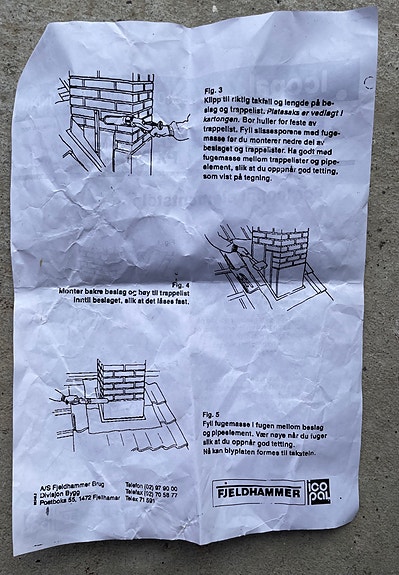 Fig. 3
Klipp til riktig takfall og lengde på be-
slag og trappelist. Platesaks er vedlagt i
kartongen. Bor huller for feste av
trappelist. Fyll slissesporene med fuge-
masse før du monterer nedre del av
beslaget og trappelister. Ha godt med
fugemasse mellom trappelister og pipe-
element, slik at du oppnår god tetting,
som vist på tegning.
Fig. 4
Monter bakre beslag og bøy til trappelist
inntil beslaget, slik at det låses fast.
Fig. 5
Fyll fugemasse i fugen mellom beslag
og pipeelement. Vær nøye når du fuger
slik at du oppnår god tetting.
Nå kan blyplaten formes til takstein.
A/S Fjeldhammer Brug
Divisjon Bygg
Postboks 55, 1472 Fjellhamar
Telefon (02) 97 90 00
Telefax (02) 70 58 77
Telex 71 591
FJELDHAMMER
ico
pal